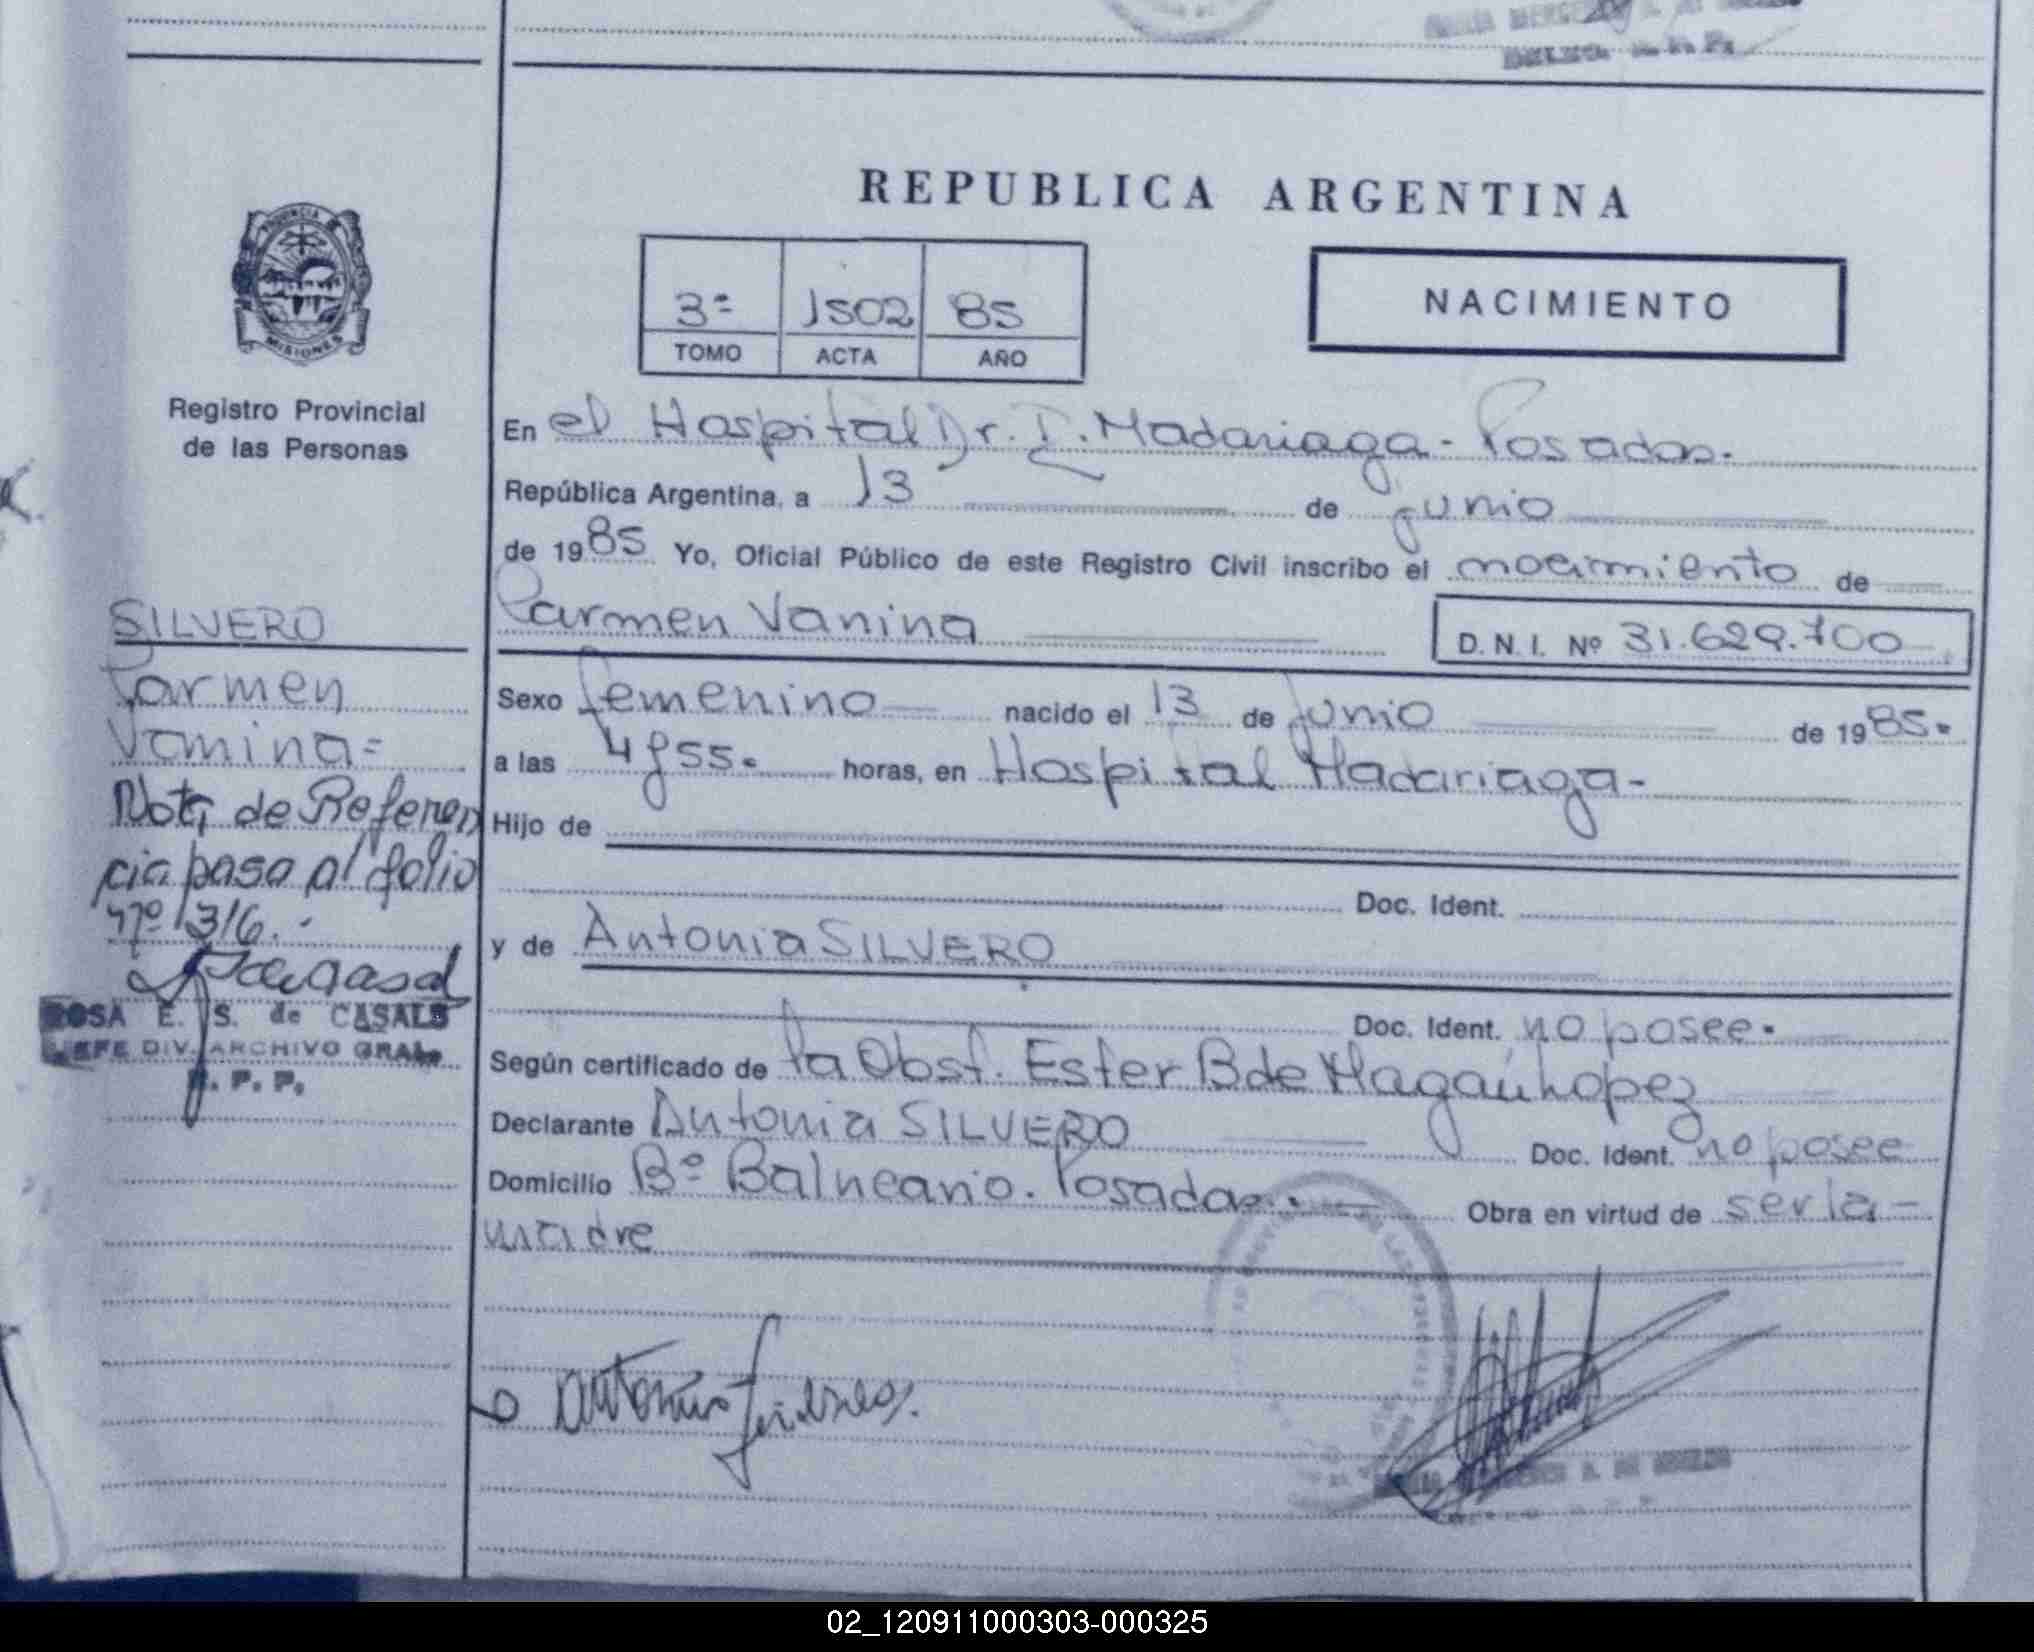 REPUBLICA ARGENTINA
PROVINCIA DE
MISIONES
Registro Provincial
de las Personas
3º 1502 85
TOMO ACTA AÑO
NACIMIENTO
En el Hospital Dr. R. Madariaga - Posadas.
República Argentina, a 13 de junio
de 1985 Yo, Oficial Público de este Registro Civil inscribo el nacimiento de
Carmen Vanina D. N. I. Nº 31.629.700
Sexo femenino nacido el 13 de junio de 1985.
a las 4 y 55. horas, en Hospital Madariaga-
Hijo de
Doc. Ident.
y de Antonia SILVERO
Doc. Ident. no posee.
Según certificado de la Obst. Ester B de
Declarante Antonia SILVERO Doc. Ident. no posee
Domicilio Bº Balneario. Posadas. Obra en virtud de ser la-
madre
SILVERO
Carmen
Vanina=
Nota de Referen
cia pasa al folio
nº 316.-
ROSA E. S. de CASALS
JEFE DIV. ARCHIVO GRAL.
R. P. P.
02_120911000303-000325